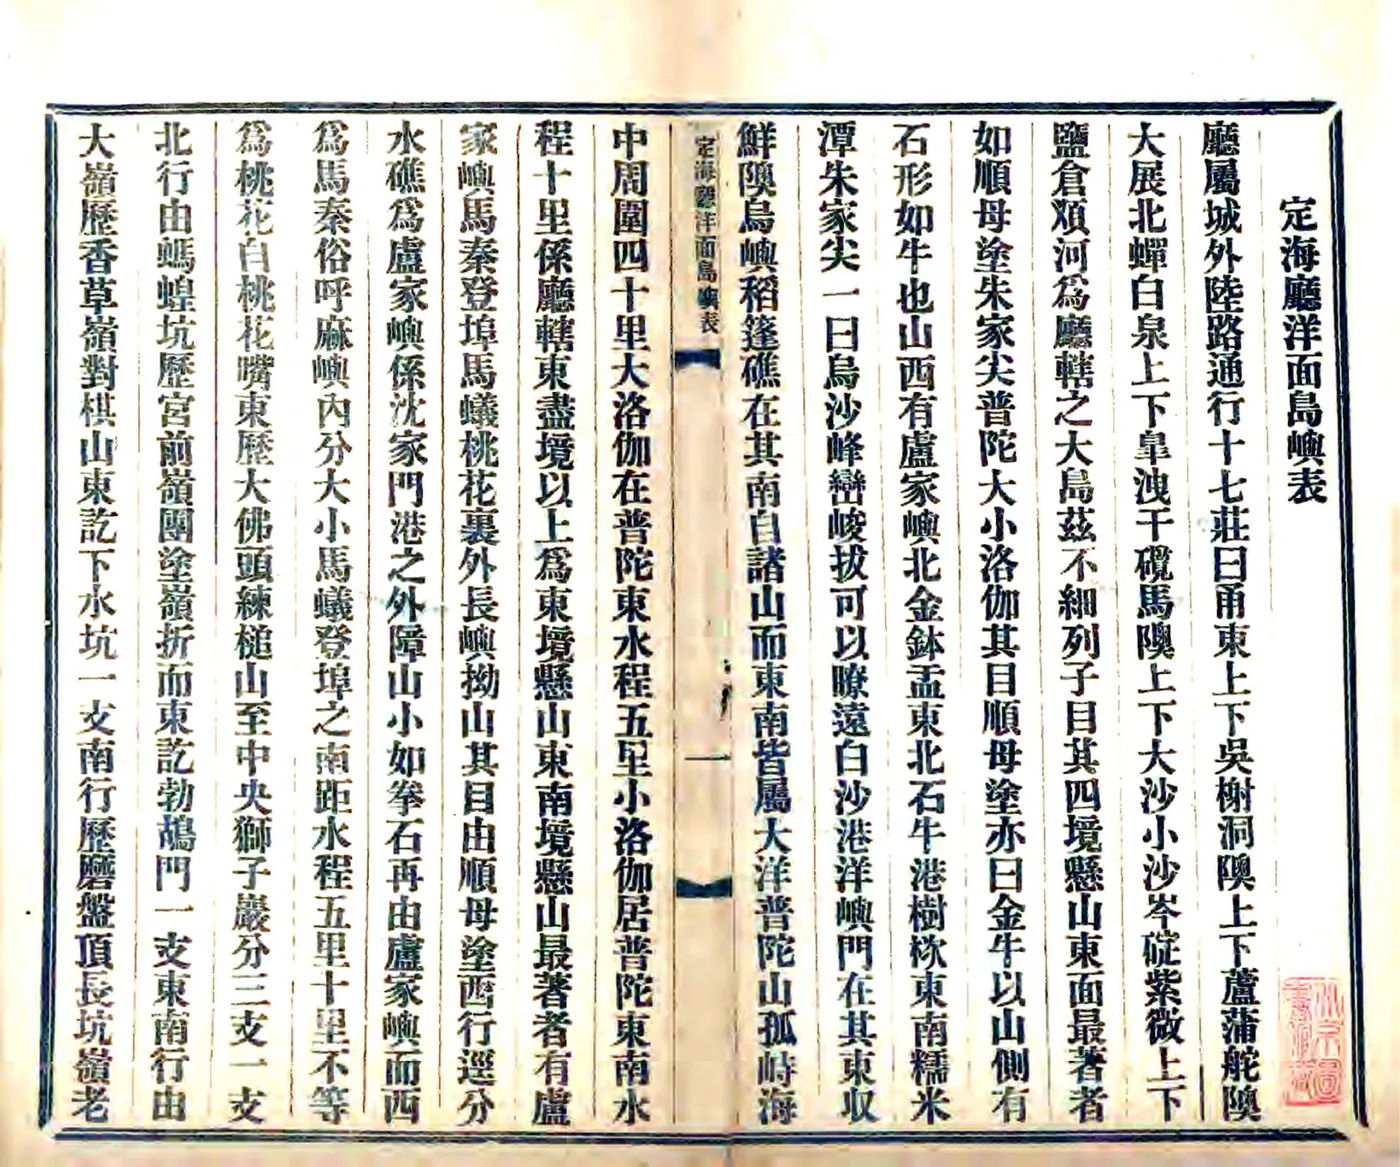 定海廳洋面島嶼表
廳屬城外陸路通行十七莊曰甬東上下吳榭洞隩上下蘆蒲舵隩
大展北蟬白泉上下臯洩干䃮馬隩上下大沙小沙岑碇紫微上下
鹽倉煩河爲廳轄之大島茲不細列子目其四境懸山東面最著者
如順母塗朱家尖普陀大小洛伽其目順母塗亦曰金牛以山側有
石形如牛也山西有盧家嶼北金鉢盂東北石牛港樹栨東南糯米
潭朱家尖一曰烏沙峰巒峻拔可以瞭遠白沙港洋嶼門在其東収
鮮隩烏嶼稻篷礁在其南自諸山而東南皆屬大洋普陀山孤峙海
定海廳洋面島嶼表
一
中周圍四十里大洛伽在普陀東水程五里小洛伽居普陀東南水
程十里係廳轄東盡境以上爲東境懸山東南境懸山最著者有盧
家嶼馬秦登埠馬蟻桃花裏外長嶼拗山其目由順母塗西行巡分
水礁爲盧家嶼係沈家門港之外障山小如拳石再由盧家嶼而西
爲馬秦俗呼麻嶼內分大小馬蟻登埠之南距水程五里十里不等
爲桃花自桃花嘴東歷大佛頭練槌山至中央獅子巖分三支一支
北行由螞蝗坑歷宮前嶺團塗嶺折而東訖勃鴣門一支東南行由
大嶺歷香草嶺對棋山東訖下水坑一支南行歷磨盤頂長坑嶺老